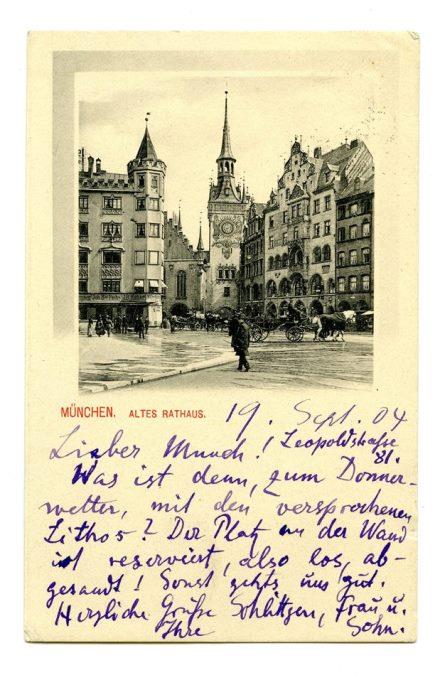 MÜNCHEN. ALTES RATHAUS.
19. Sept. 04
Leopoldstraße
81.
Lieber Munch!
Was ist denn, zum Donner-
wetter, mit den versprochenen
Lithos? Der Platz an der Wand
ist reserviert, also los, ab-
gesandt! Sonst gehts uns gut.
Herzliche Grüße Schlittgen, Frau u.
Ihre Sohn.